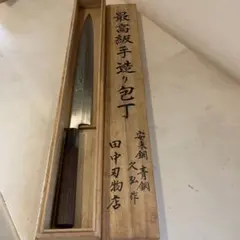 最高級手造り包丁
安来鋼 青鋼
久弘作
田中刃物店